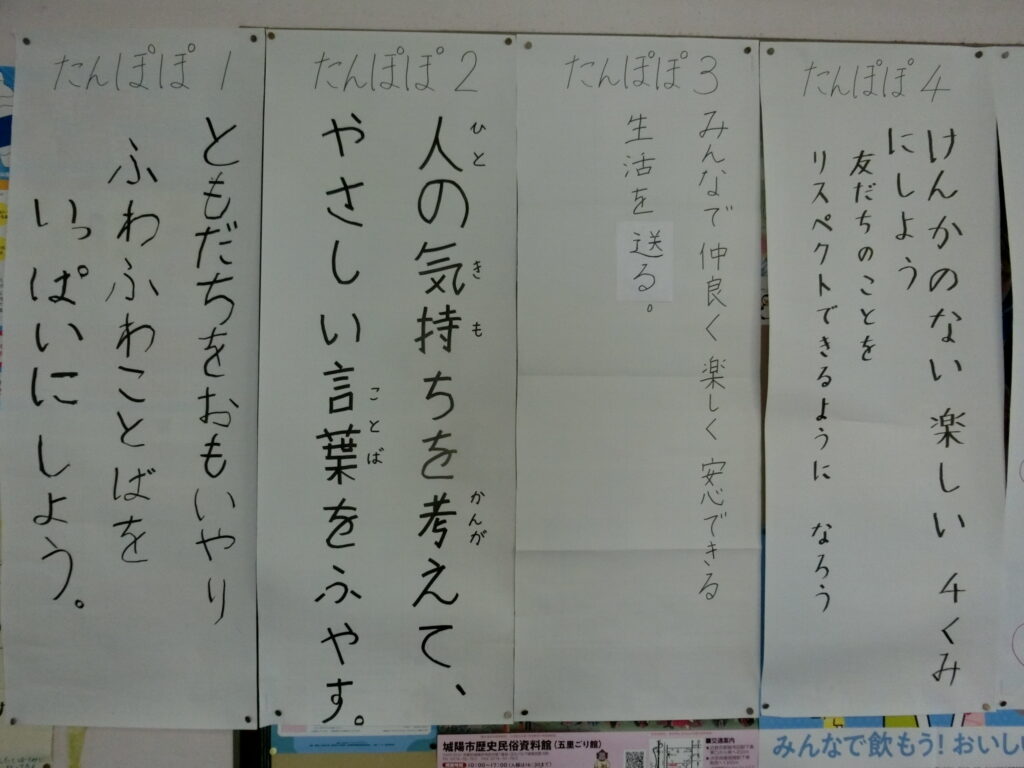 たんぽぽ 1
ともだちをおもいやり
ふわふわことばを
いっぱいにしよう。
たんぽぽ 2
人の気持ちを考えて、
ひと き も かんが
やさしい言葉をふやす。
ことば
たんぽぽ 3
みんなで仲良く楽しく安心できる
生活を送る。
たんぽぽ 4
けんかのない楽しい 4くみ
にしよう
友だちのことを
リスペクトできるように なろう
城陽市歴史民俗資料館(五里ごり館)
10:00~17:00
■交通案内
みんなで飲もう!おいしい